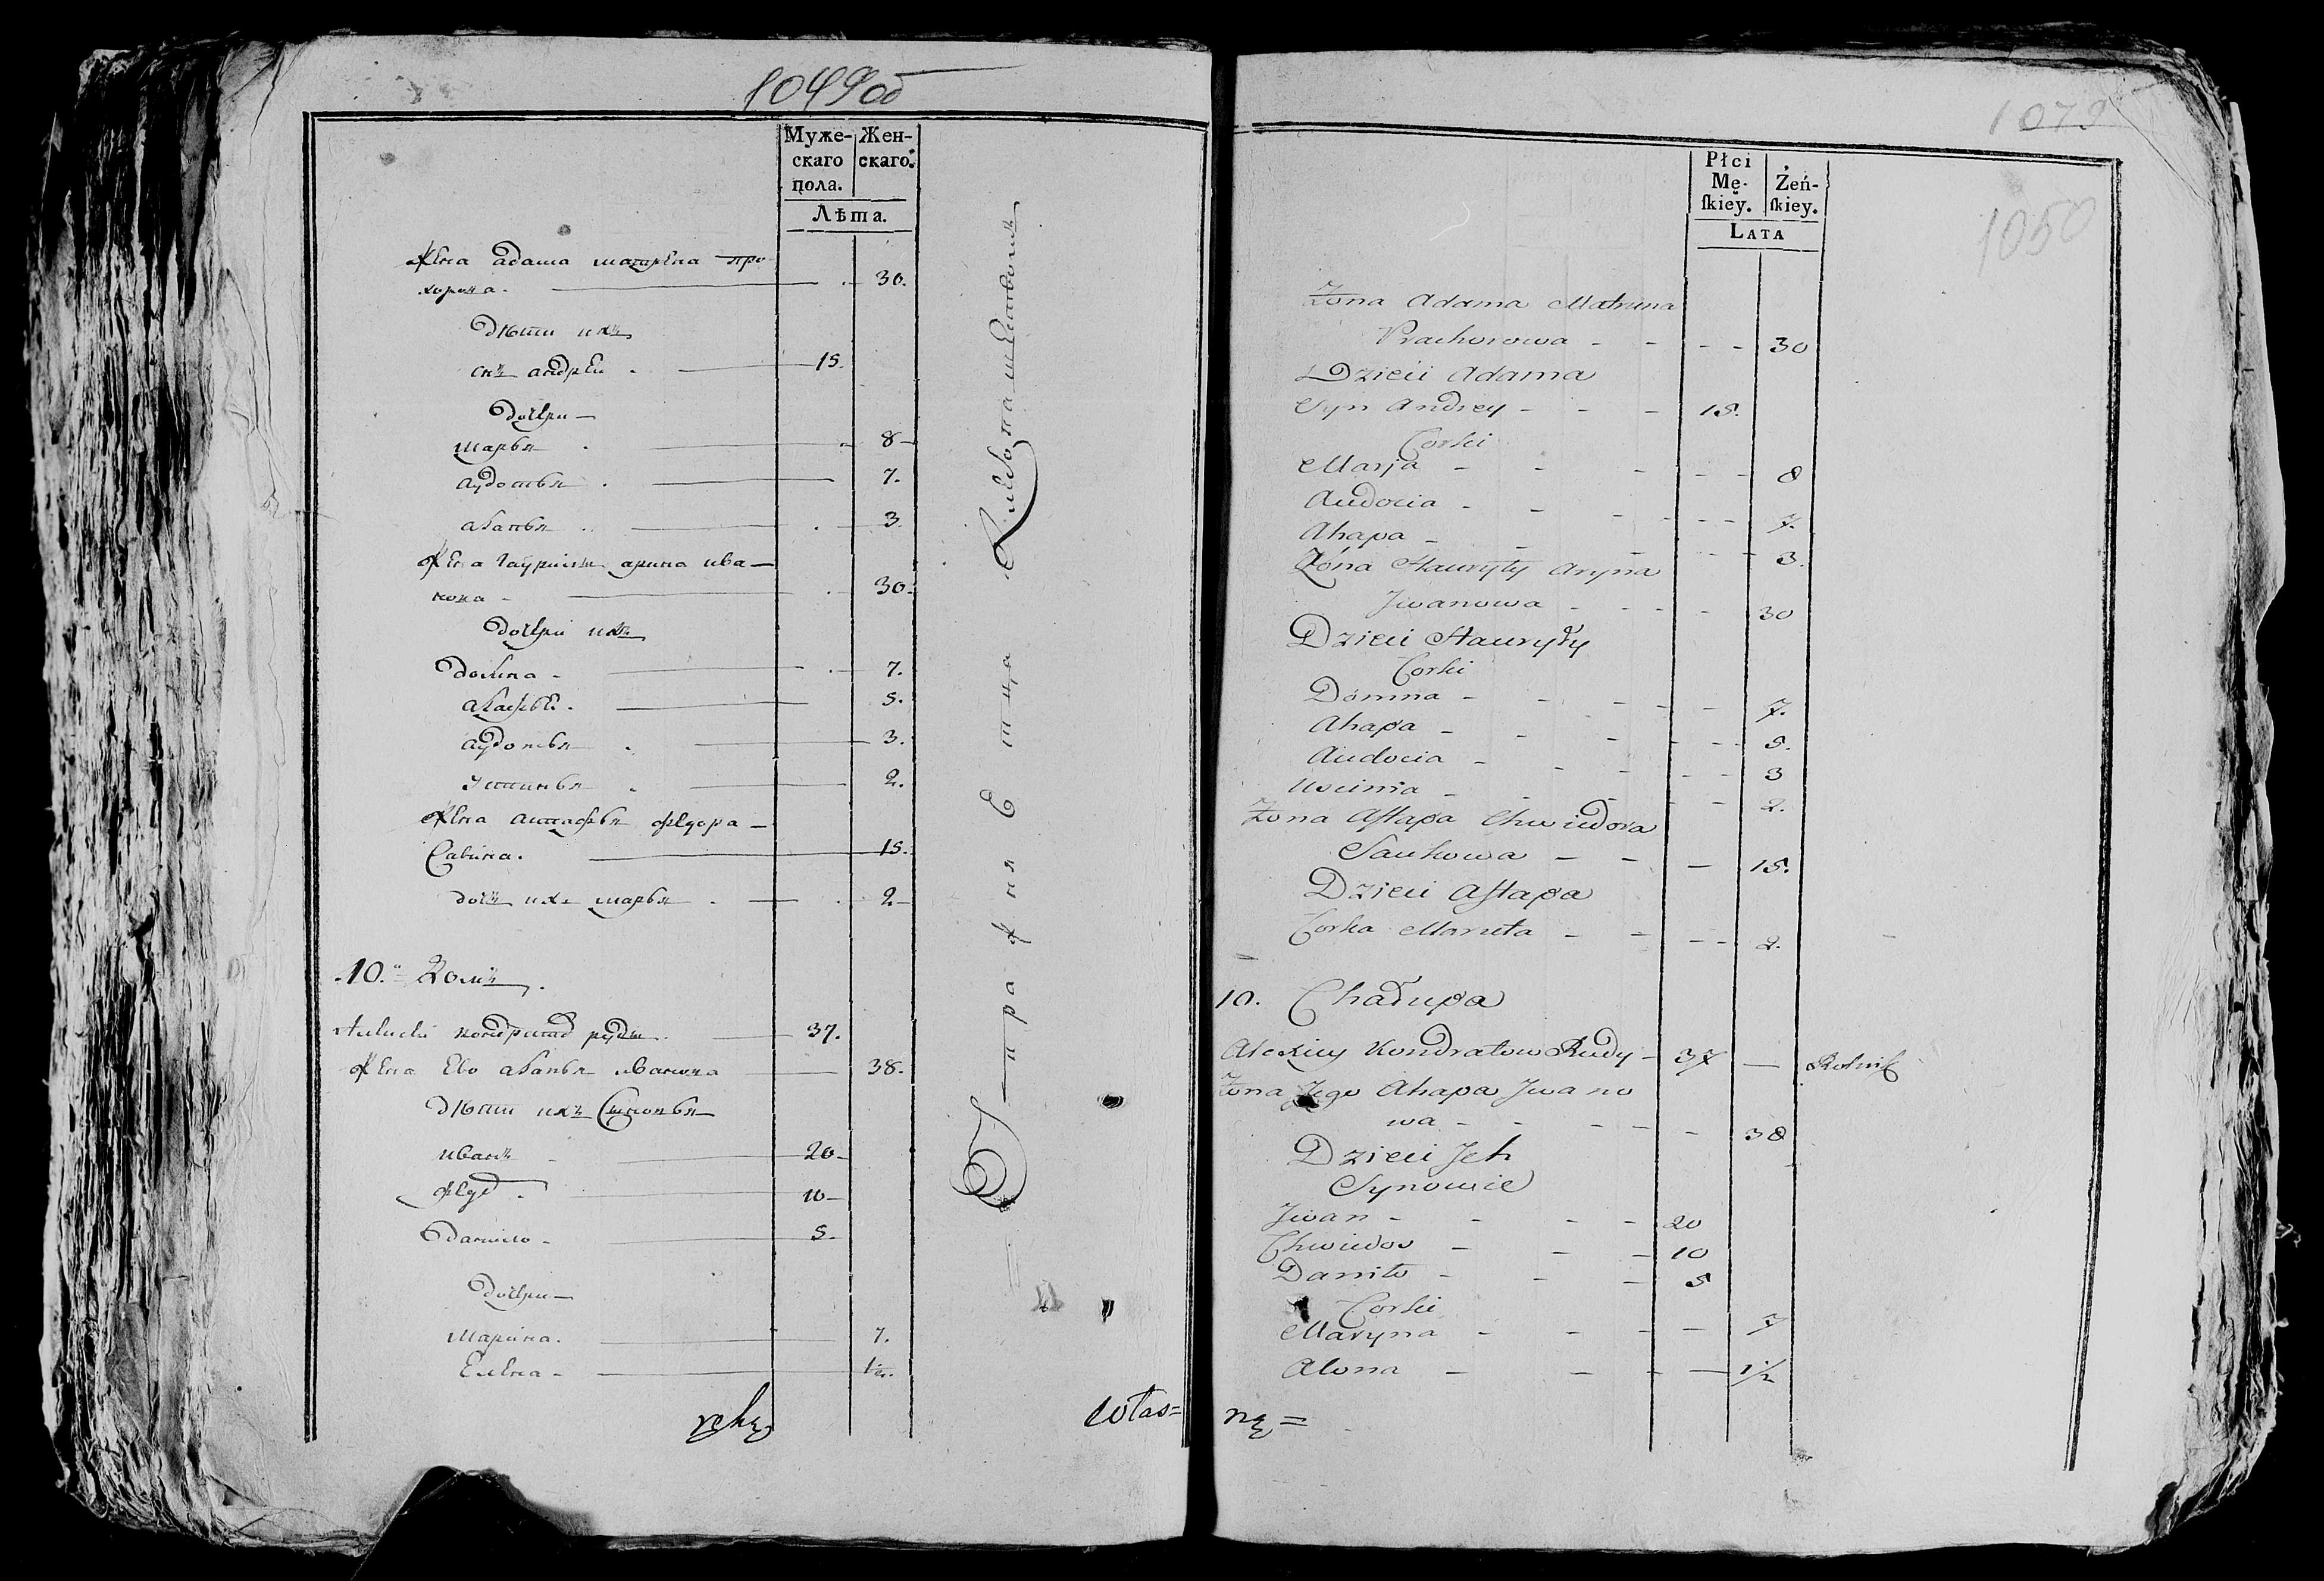 1049об
Муже-
скаго
пола.
Жен-
скаго.
Лѣта.
Жена адама матрена про
хорова. 30.
Дѣти ихъ
снъ андреи 15.
Дочери
марья 8
аудотья 7.
агапья 3
Жена гаурилы арина ива
нова 30.
Дочери ихъ
Домна 7.
агафье. 5.
аудотья 3.
Устинья 2.
Жена астафья федора
Савина. 15.
дочь ихъ марья 2
10. Домъ
Алисей кондратов руды 37.
Жена Ево агапья иванова 38.
Дѣти ихъ Сыновья
иванъ 20
фед 10
Данило 5.
Дочери
Марина. 7.
Елена 1/2.
ręką
własz=
1079
1050
Płci
Mę-
ſkiey.
Żeń-
ſkiey.
LATA
Żona Adama Matruna
Prachorowa - - - - 30
Dzieci Adama
Syn Andrey - - - 15.
Corki
Marja - - - - - 8
Audocia - - - - - 7.
Ahapa - - - - - 3.
Żona Hauryły Aryna
Jwanowa - - - - 30
Dzieci Hauryły
Corki
Domna - - - - - 7.
Ahapa - - - - - 5.
Audocia - - - - - 3
Uscinia - - - - 2.
Żona Aſtapa Chwiedora
Saukowa - - - 15.
Dzieci Aſtapa
Corka Maruta - - - - 2.
10. Chałupa
Alexiey Kondratow Rudy - 37 - Rolnik
Żona Jego Ahapa Jwano
wa - - - - - 38
Dzieci Jch
Synowie
Jwan - - - - 20
Chwiedor - - - 10
Daniło - - - 5
Corki
Maryna - - - - 7
Alona - - - - 1/2
ną=